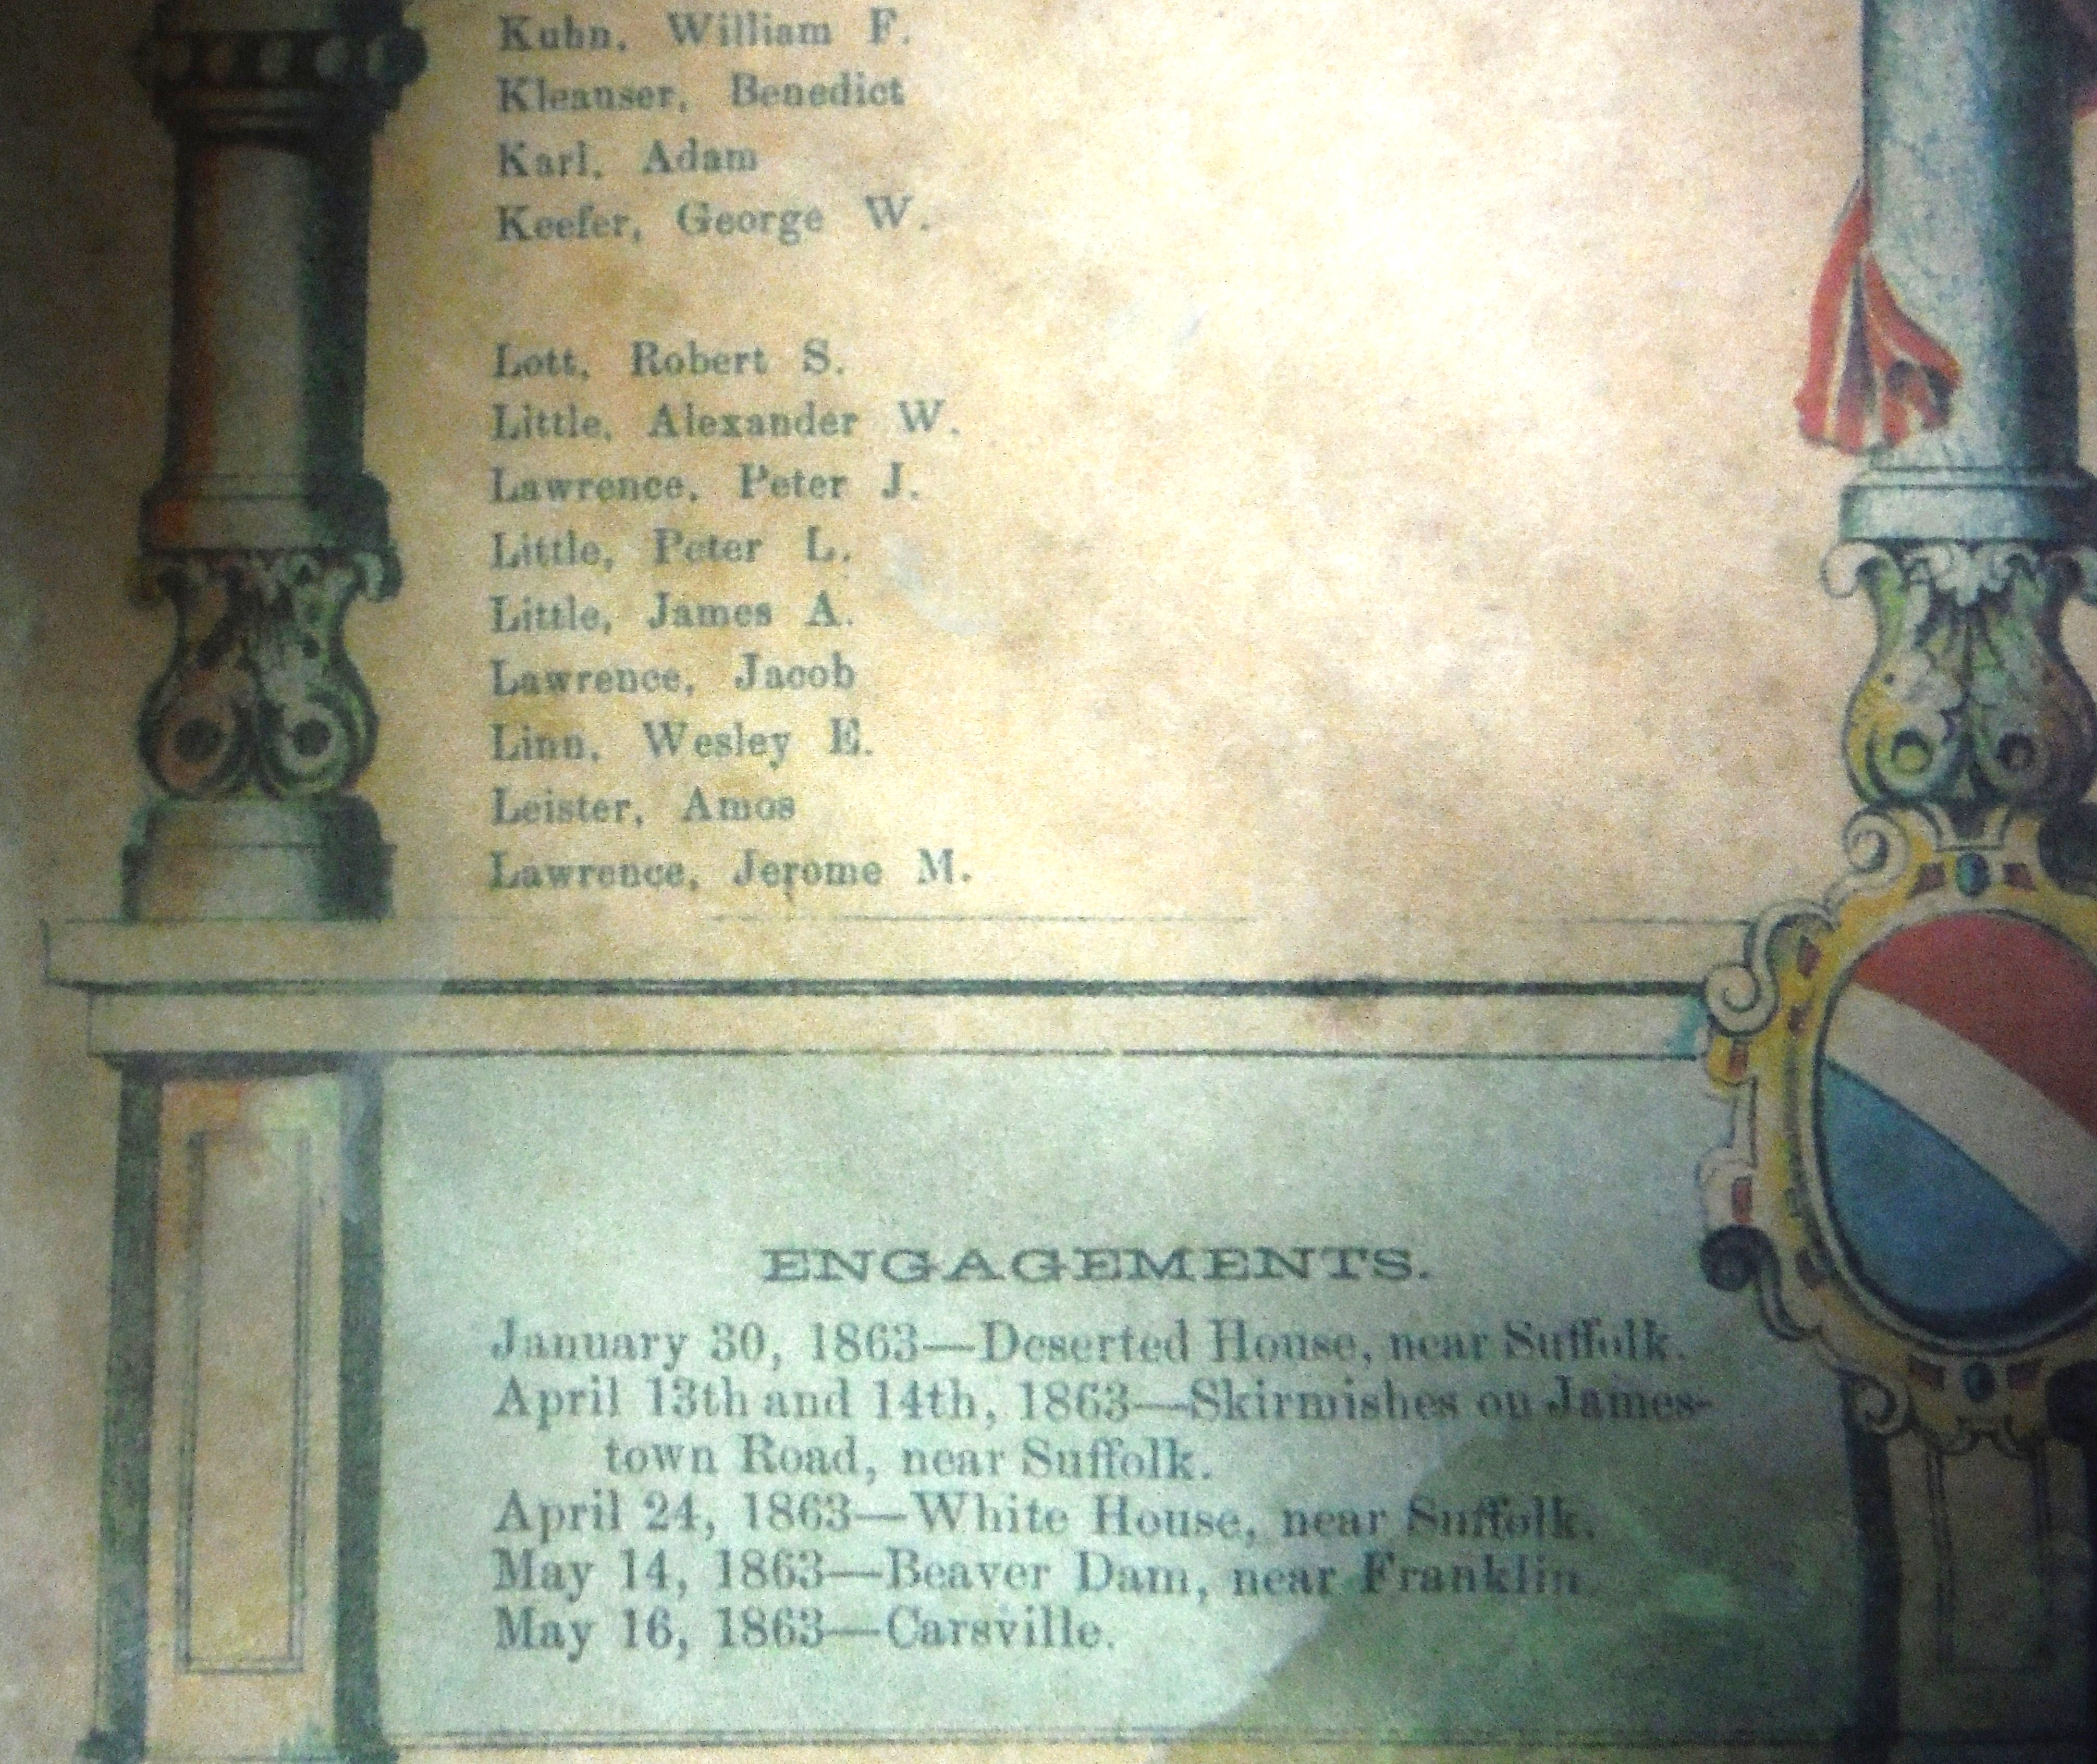 Kuhn, William F.
Kleanser, Benedict
Karl, Adam
Keefer, George W.
Lott, Robert S.
Little, Alexander W.
Lawrence, Peter J.
Little, Peter L.
Little, James A.
Lawrence, Jacob
Linn, Wesley E.
Leister, Amos
Lawrence, Jerome M.
ENGAGEMENTS.
January 30, 1863—Deserted House, near Suffolk.
April 13th and 14th, 1863—Skirmishes on James-
town Road, near Suffolk.
April 24, 1863—White House, near Suffolk.
May 14, 1863—Beaver Dam, near Franklin
May 16, 1863—Carsville.